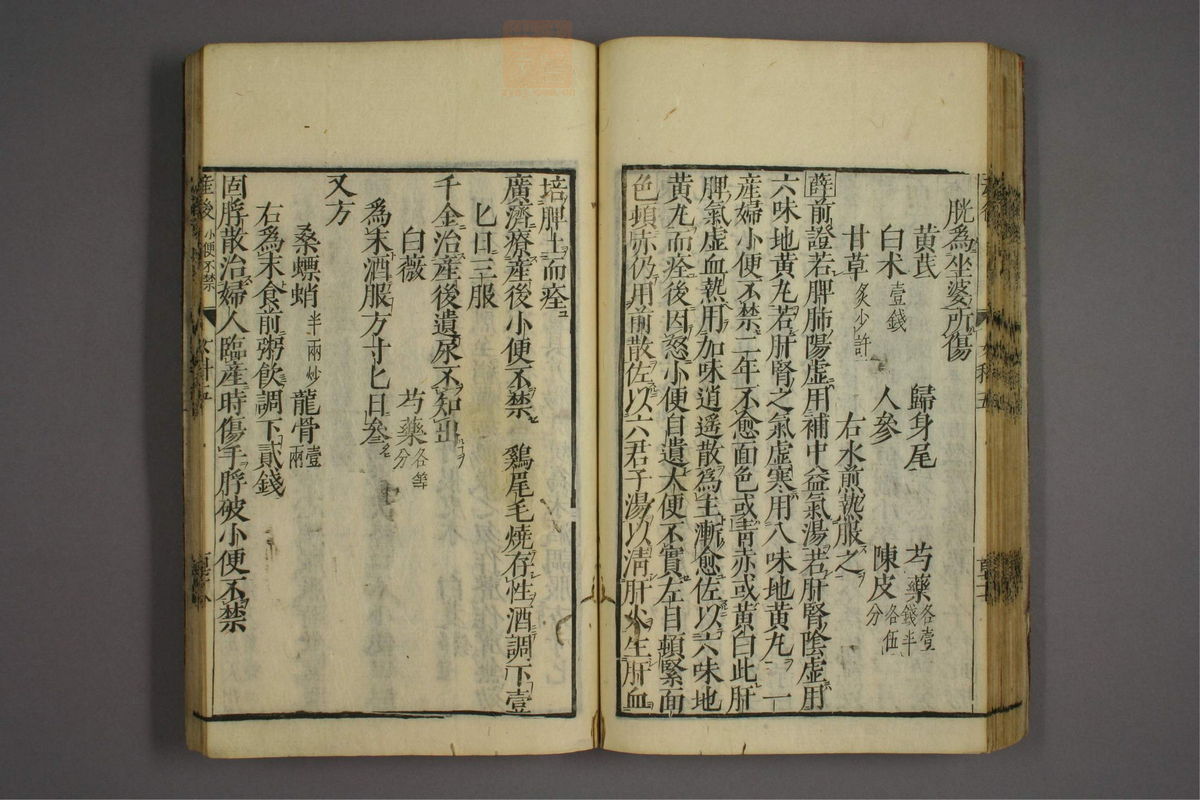 胱爲坐婆所傷
黃芪 歸身尾 芍藥各壹錢半
白朮壹錢 人參 陳皮各伍分
甘草炙少許 右水煎熱服之
薛前證若脾肺陽虛用補中益氣湯若肝腎陰虛用
六味地黃丸若肝腎之氣虛寒用八味地黃丸一
産婦小便不禁二年不愈面色或靑赤或黃白此肝
脾氣虛血熱用加味逍遥散爲主漸愈佐以六味地
黃丸而痊後因怒小便自遺大便不實左目頓緊面
色頓赤仍用前散佐以六君子湯以淸肝火生肝血
培脾土而痊
廣濟療産後小便不禁 鷄尾毛燒存性酒調下壹
匕日三服
千金治産後遺尿不知出
白薇 芍藥各等分
爲末酒服方寸匕日參
又方
桑螵蛸半兩炒 龍骨壹兩
右爲末食前粥飮調下貳錢
固脬散治婦人臨産時傷手脬破小便不禁
産後 小便不禁